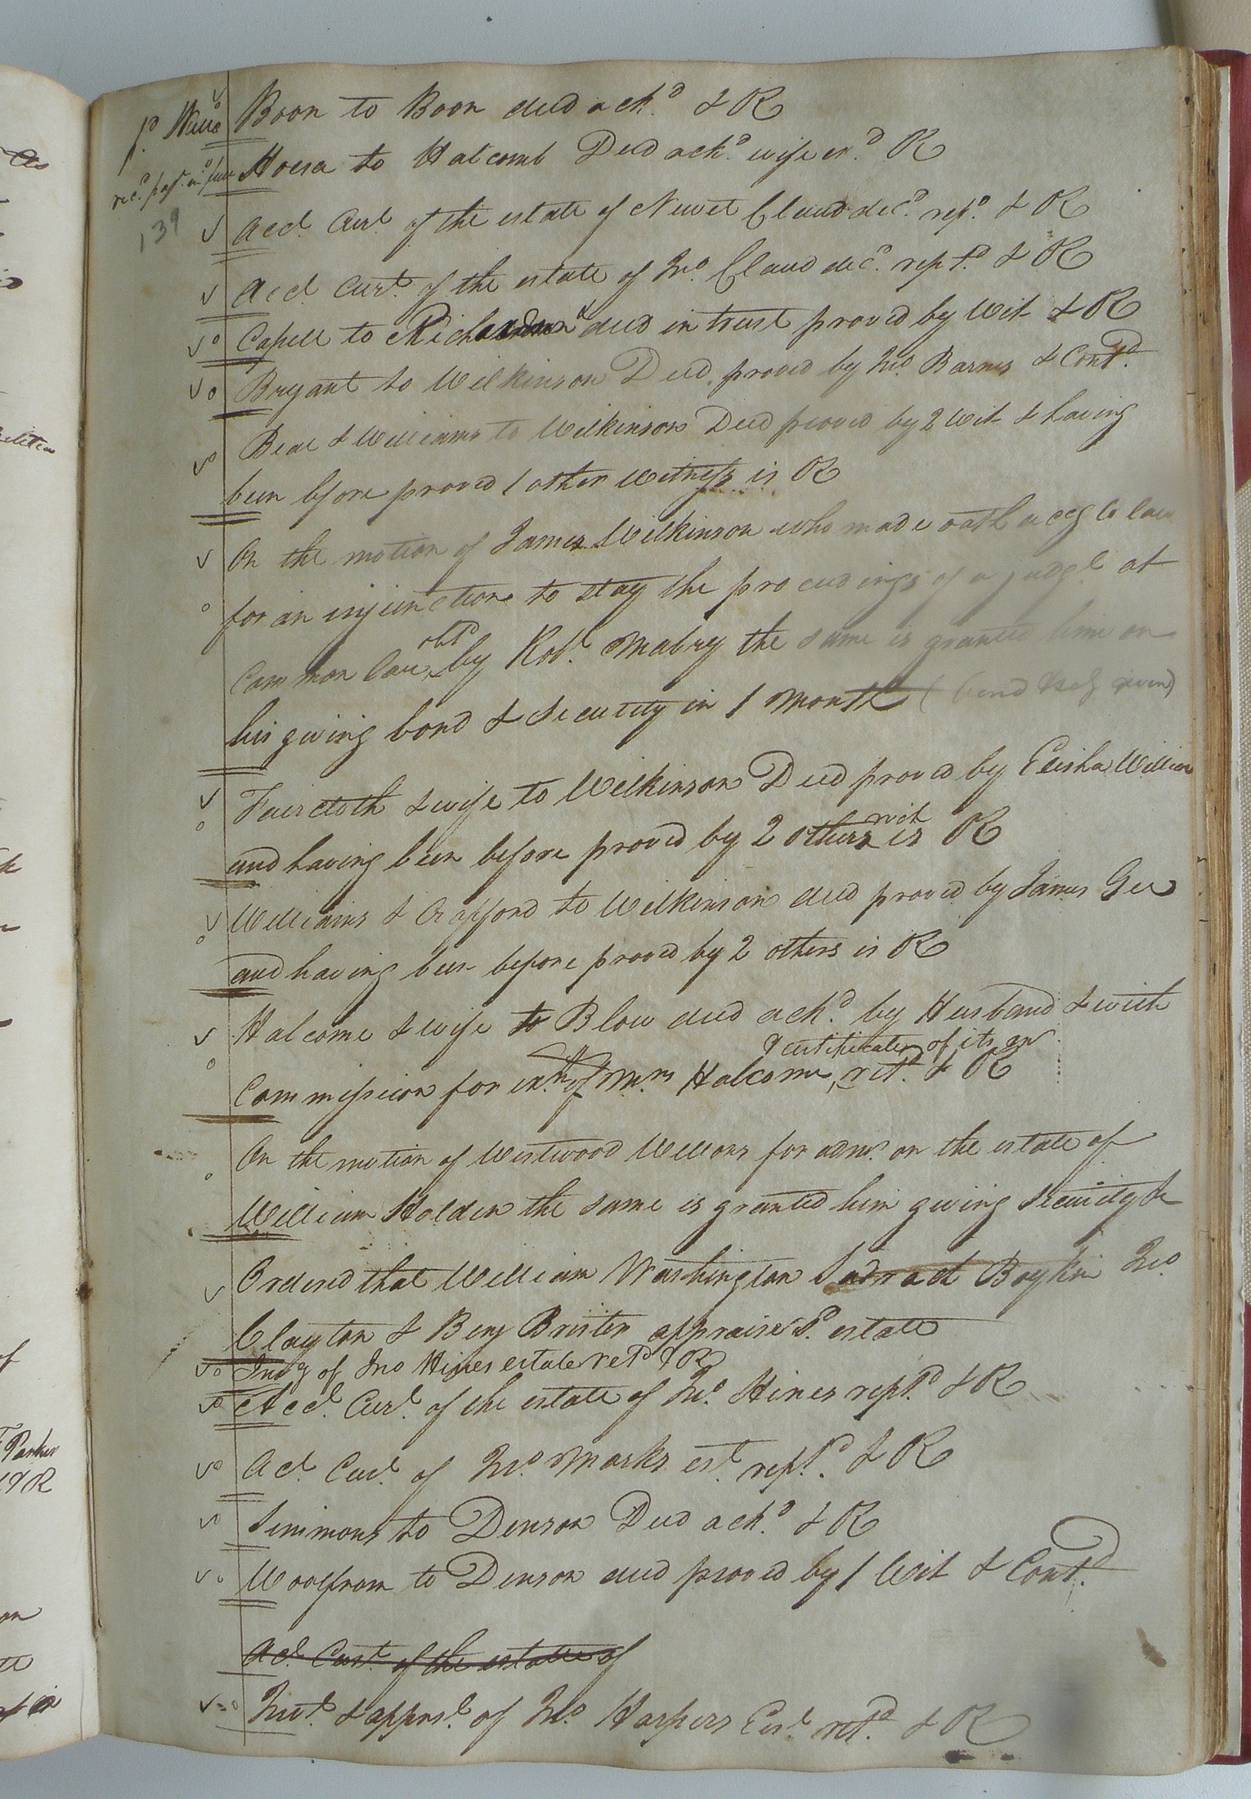 Boon to Boon deed ackd. & R
Hossa to Halcomb Deed ackd. wife exd. R
139
Acct. Curt. of the estate of Newet Claud decd. repd. & R
Acct. Curt. of the estate of Jno. Claud decd. reptd. & R
Capell to Richardson deed in trust proved by Wit & R
Bryant to Wilkinson Deed proved by Jno. Barnes & Contd.
Beal & Williams to Wilkinson Deed proved by 2 Wit & having
been before proved 1 other Witness is R
On the motion of James Wilkinson who made oath accg to law
for an injunction to stay the proceedings of a judgt. at
Common Law obtd by Robt. Mabry the same is granted him on
his giving bond & Security in 1 Month (bond &c given)
Faircloth & wife to Wilkinson Deed proved by Elisha William
and having been before proved by 2 others wit is R
Williams & Crafford to Wilkinson deed proved by James Gee
and having been before proved by 2 others is R
Halcome & wife to Blow deed ackd. by Husband & with
Commission for exn. of Mrs Halcome, & certificate of its ex retd. & R
On the motion of Westwood Wellons for admr. on the estate of
William Holden the same is granted him giving Security &
Ordered that William Washington Boykin Jno.
Clayton & Benj Brister appraise sd. estate
Invy of Jno Hines estate retd & R
Acct. Curt. of the estate of Jno. Hines reptd & R
Act. Curt. of Jno. Marks est. reptd. & R
Simmons to Denson Deed ackd. & R
Woolfram to Denson deed proved by 1 Wit & Contd.
Act. Curt. of the estate of
Invt. & apprst. of Jno. Harpers Est. retd. & R